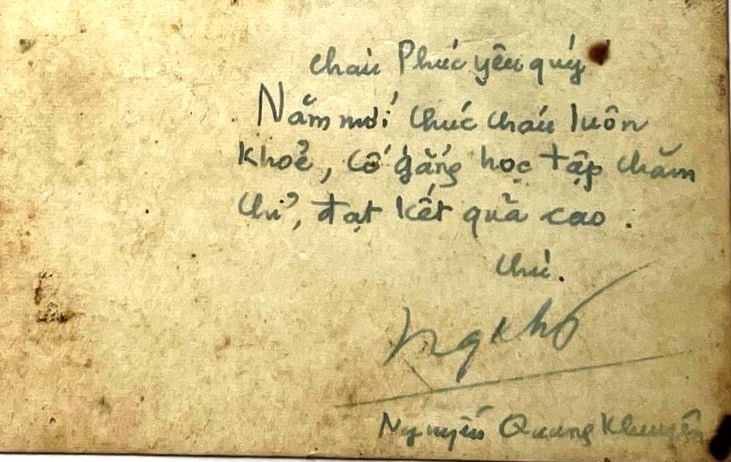 cháu Phúc yêu quý
Năm mới chúc cháu luôn
khoẻ, cố gắng học tập chăm
chỉ, đạt kết quả cao.
Chú.
Nguyễn Quang Khuyến